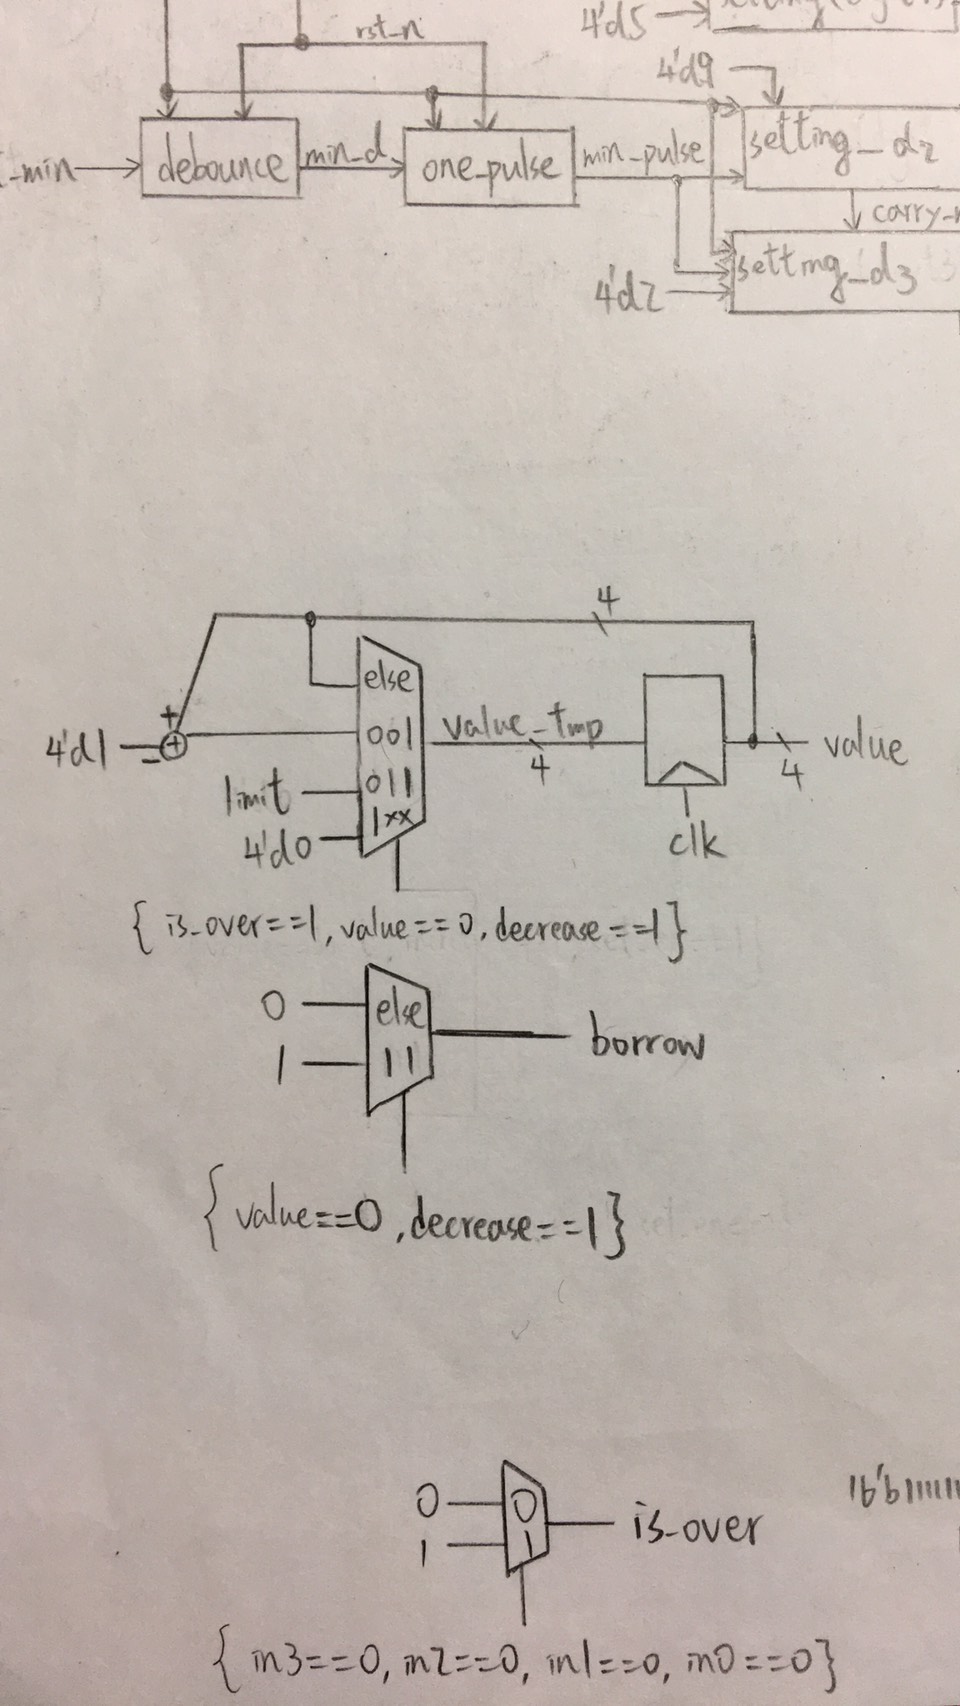 rst_n
4'd5
4'd9
_min
debounce
min_d
one_pulse
min_pulse
setting_d2
carry_
setting_d3
4'd2
4
else
001
011
1xx
4'd1
+
+
−
limit
4'd0
value_tmp
4
clk
4
value
{ is_over==1, value==0, decrease==1}
0
1
else
11
borrow
{ value==0, decrease==1}
0
1
0
1
is_over
16'b11111
{ in3==0, in2==0, in1==0, in0==0}